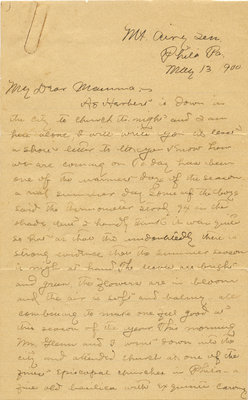 Mt. Airy, Sem
Phila Pa.
May 13, 900
My Dear Mamma:-
As Harbert is down in
the city to church to night and I am
here alone, I will write you at least
a short letter to let you know how
we are coming on. To day has been
one of the warmest days of the season
a real summer day. Some of the boys
said the thermometer stood 94 in the
shade, but I hardly think it was quite
so hot as that tho undoubtedly there is
strong evidence that the summer season
is right at hand. The leaves are bright
and green, the flowers are in bloom
and the air is soft and balmy, all
combining to make one feel good at
this season of the year. This morning
Mr. Glenn and I went down into the
city and attended church at one of the
finest Episcopal churches in Phila - a
fine old basilica with exquisite carving